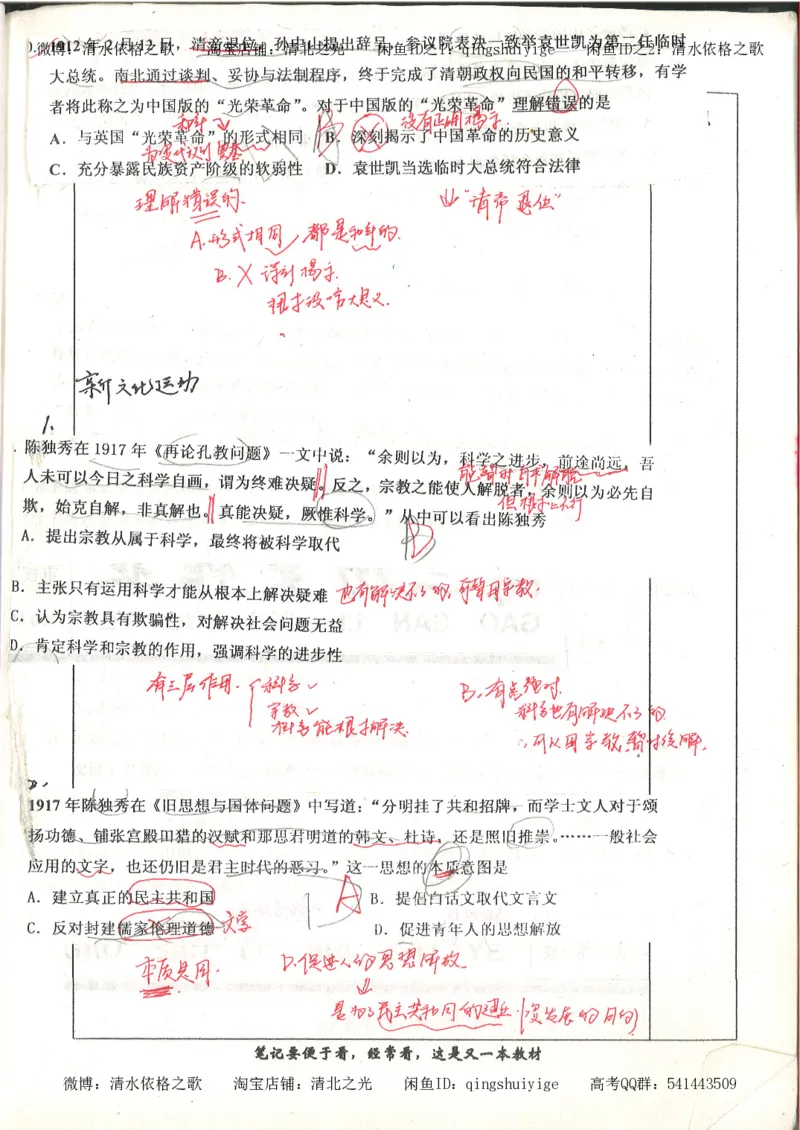 微博：清水依格之歌 淘宝店铺：清北之光 闲鱼ID之1：qingshuiyige 闲鱼ID之2：清水依格之歌
1912年2月12日，清帝退位。孙中山提出辞呈，参议院表决一致举袁世凯为第二任临时
大总统。南北通过谈判、妥协与法制程序，终于完成了清朝政权向民国的和平转移，有学
者将此称之为中国版的“光荣革命”。对于中国版的“光荣革命”理解错误的是
和平 B 没有正确揭示
A．与英国“光荣革命”的形式相同 B．深刻揭示了中国革命的历史意义
C．充分暴露民族资产阶级的软弱性 D．袁世凯当选临时大总统符合法律
理解错误的. “清帝退位”
A.形式相同 都是和平的.
B.X 深刻揭示.
新文化运动
1.
陈独秀在1917年《再论孔教问题》一文中说：“余则以为，科学之进步，前途尚远，吾
能暂时自我解脱
人未可以今日之科学自画，谓为终难决疑。反之，宗教之能使人解脱者，余则以为必先自
但根本上不行
欺，始克自解，非真解也。真能决疑，厥惟科学。”从中可以看出陈独秀
A．提出宗教从属于科学，最终将被科学取代 B
B．主张只有运用科学才能从根本上解决疑难 也有解决不了的,可暂用宗教.
C．认为宗教具有欺骗性，对解决社会问题无益
D．肯定科学和宗教的作用，强调科学的进步性
有三层作用. 科学✓ B.有点绝对.
宗教✓ 科学也有解决不了的
科学能根本解决. ∴可以用宗教暂时缓解.
2.
1917年陈独秀在《旧思想与国体问题》中写道：“分明挂了共和招牌，而学士文人对于颂
扬功德、铺张宫殿田猎的汉赋和那思君明道的韩文、杜诗，还是照旧推崇。……一般社会
应用的文字，也还仍旧是君主时代的恶习。”这一思想的本质意图是
A．建立真正的民主共和国 A B．提倡白话文取代文言文
C．反对封建儒家伦理道德 文学 D．促进青年人的思想解放
本质意图. D.促进人的思想解放.
是为了民主共和国的建立
笔记要便于看，经常看，这是又一本教材
微博：清水依格之歌 淘宝店铺：清北之光 闲鱼ID：qingshuiyige 高考QQ群：541443509